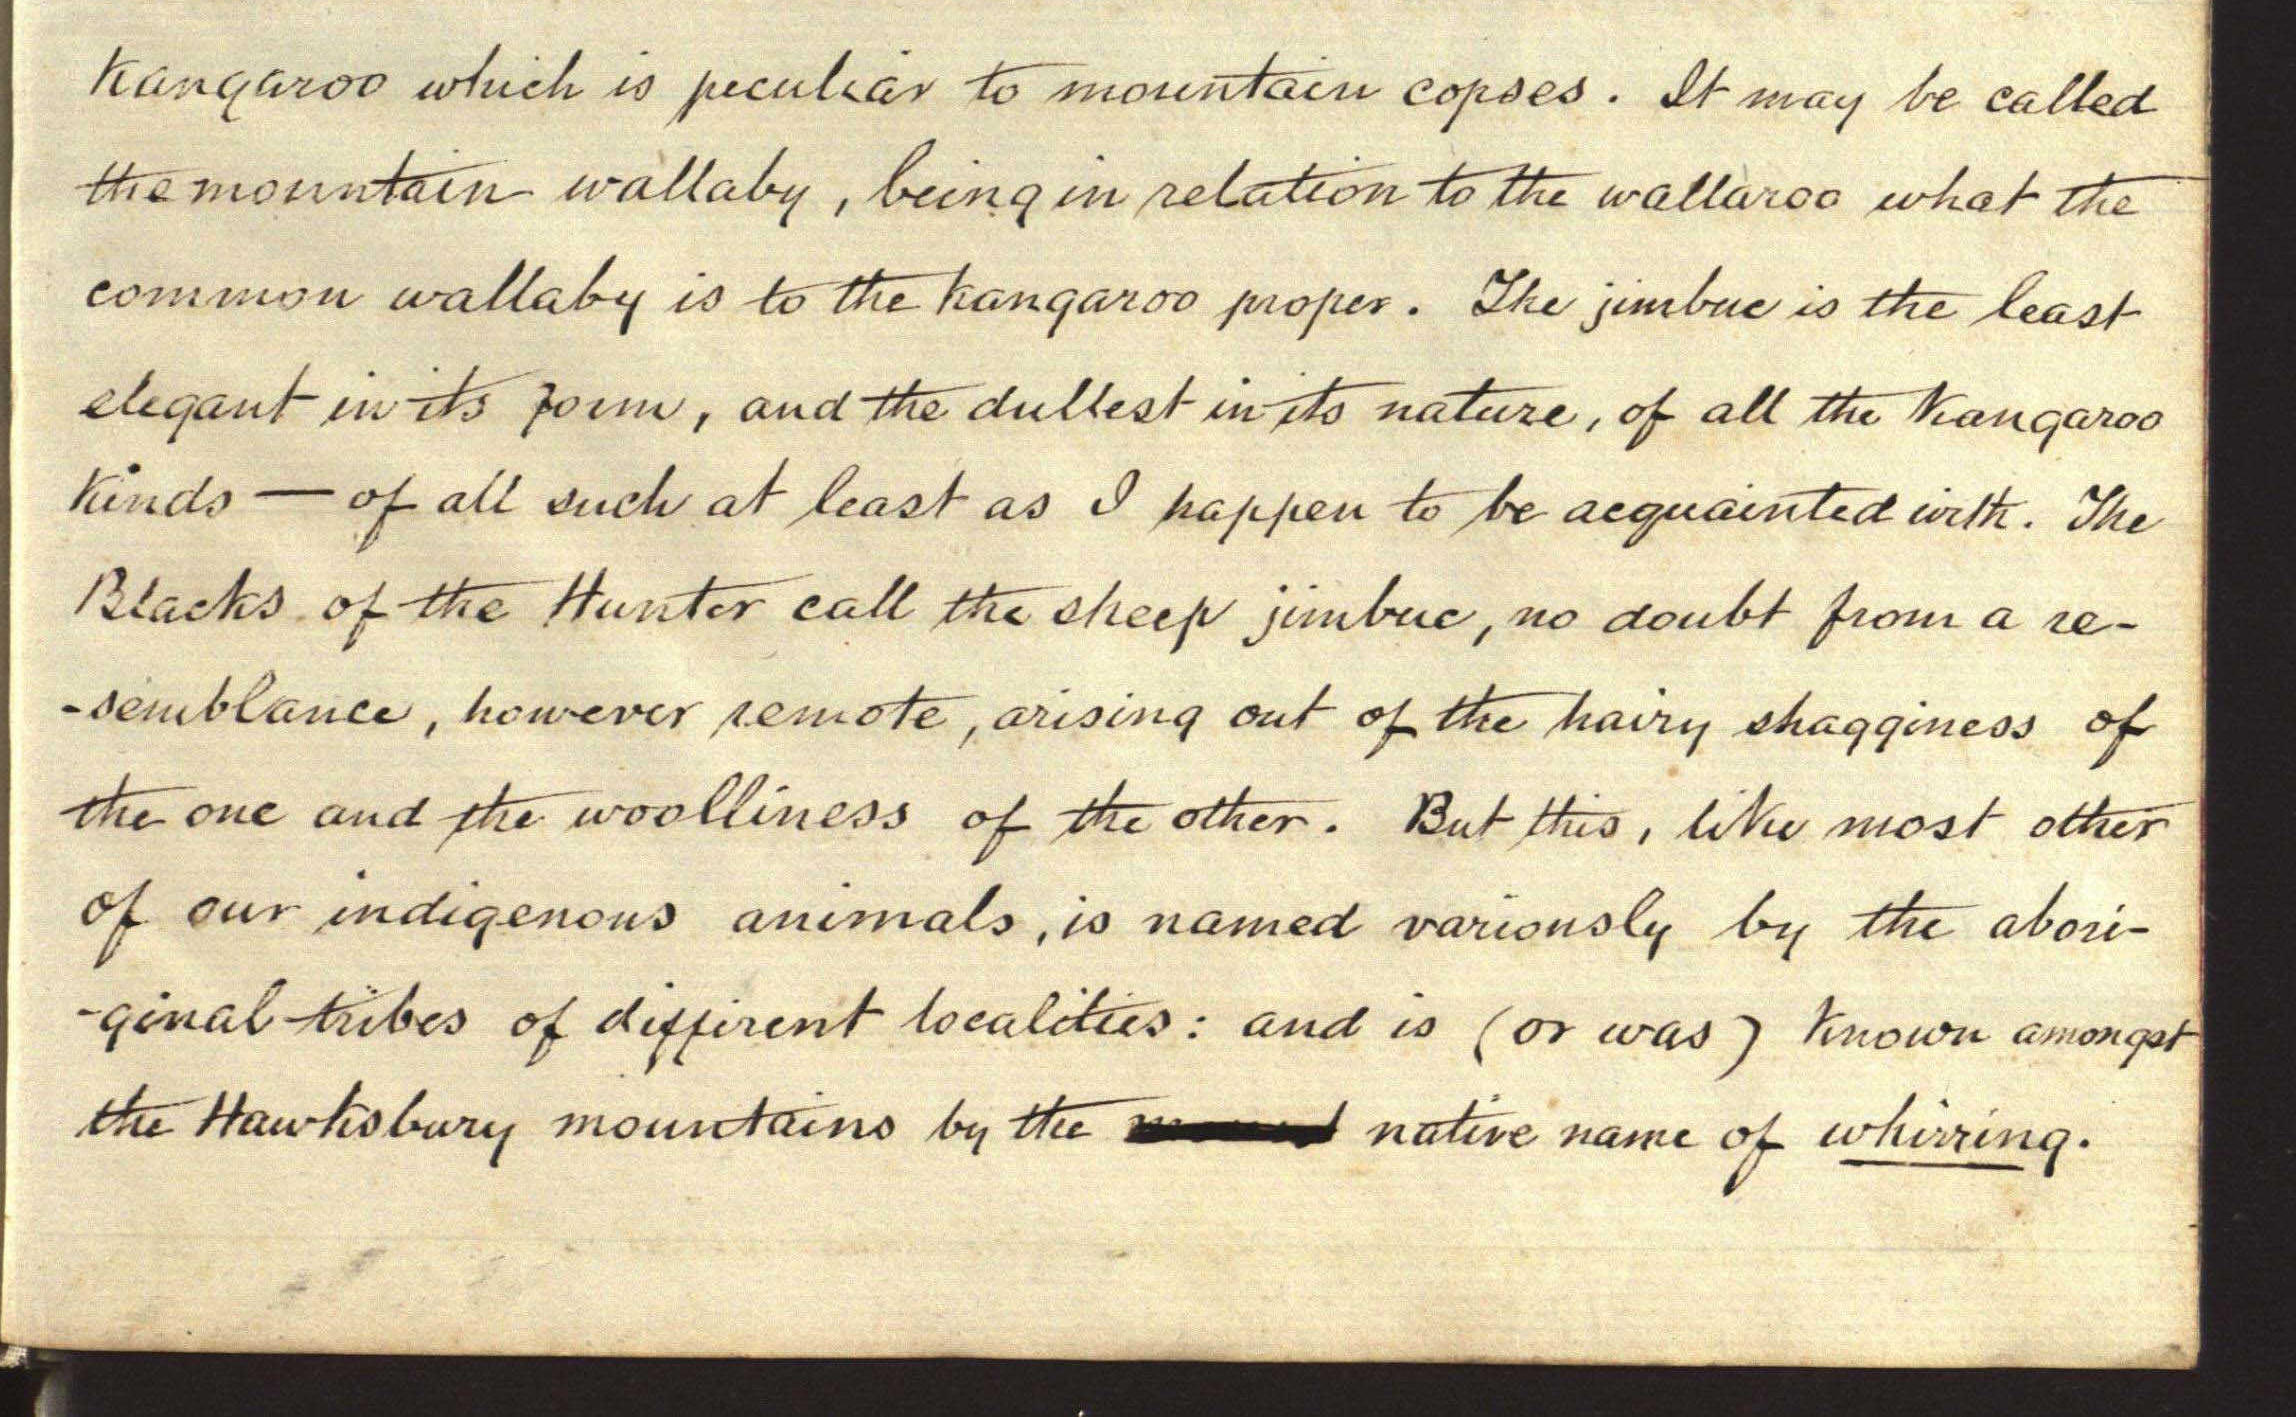 Kangaroo which is peculiar to mountain copses. It may be called
the mountain wallaby, being in relation to the wallaroo what the
common wallaby is to the Kangaroo proper. The jimbuc is the least
elegant in its form, and the dullest in its nature, of all the Kangaroo
Kinds — of all such at least as I happen to be acquainted with. The
Blacks of the Hunter call the sheep jimbuc, no doubt from a re-
-semblance, however remote, arising out of the hairy shagginess of
the one and the woolliness of the other. But this, like most other
of our indigenous animals, is named variously by the abori-
-ginal tribes of different localities: and is (or was) Known amongst
the Hawksbury mountains by the native name of whirring.